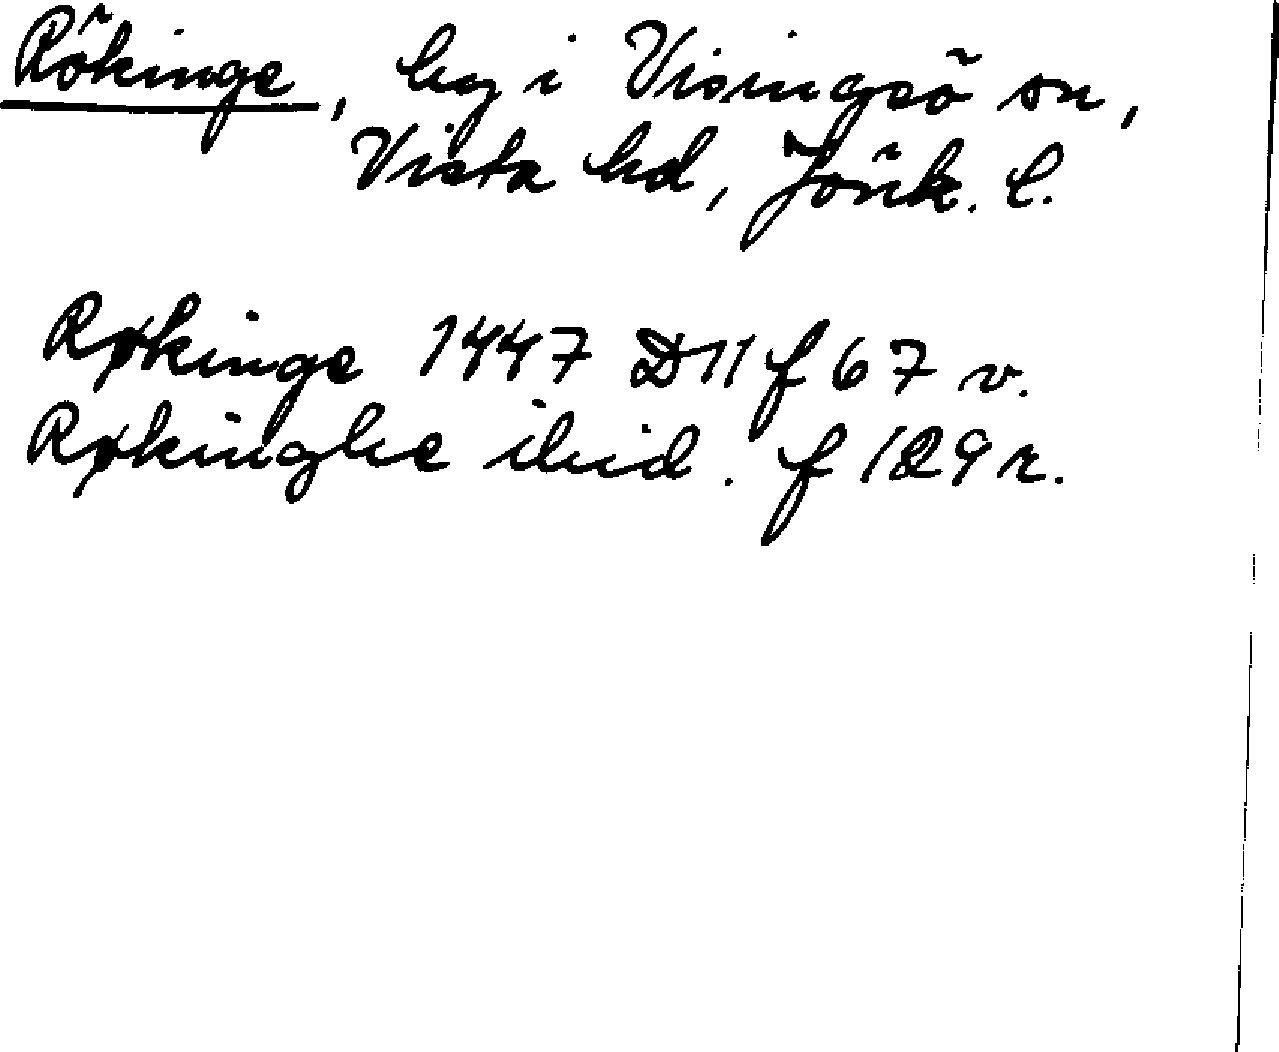 Rökinge, by i Visingsö sn,
Vista hd, Jönk. l.
Røkinge 1447 D11 f 67 v.
Røkinghe ibid. f 129 r.